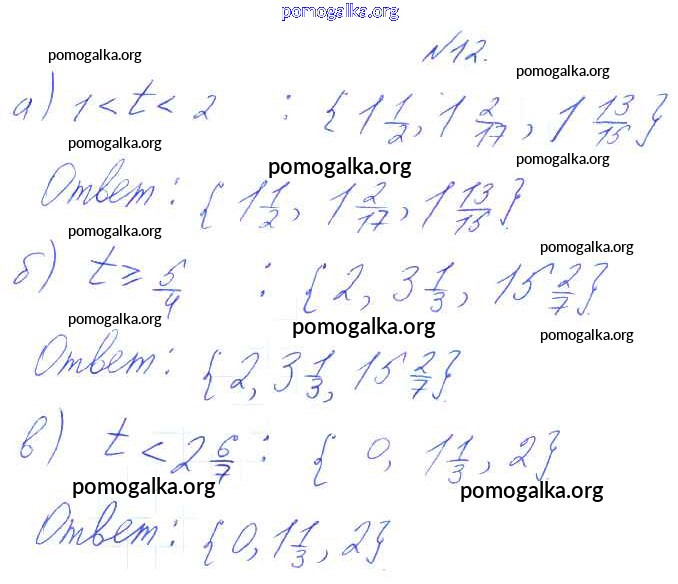 pomogalka.org
№12.
pomogalka.org
pomogalka.org
а) 1 < t < 2 : {1 1/2, 1 2/17, 1 13/15}
pomogalka.org
pomogalka.org
pomogalka.org
Ответ: {1 1/2, 1 2/17, 1 13/15}
pomogalka.org
pomogalka.org
б) t ≥ 5/4 : {2, 3 1/3, 15 2/7}
pomogalka.org
pomogalka.org
pomogalka.org
Ответ: {2, 3 1/3, 15 2/7}
в) t < 2 6/7 : { 0, 1 1/3, 2}
pomogalka.org
pomogalka.org
Ответ: {0, 1 1/3, 2}